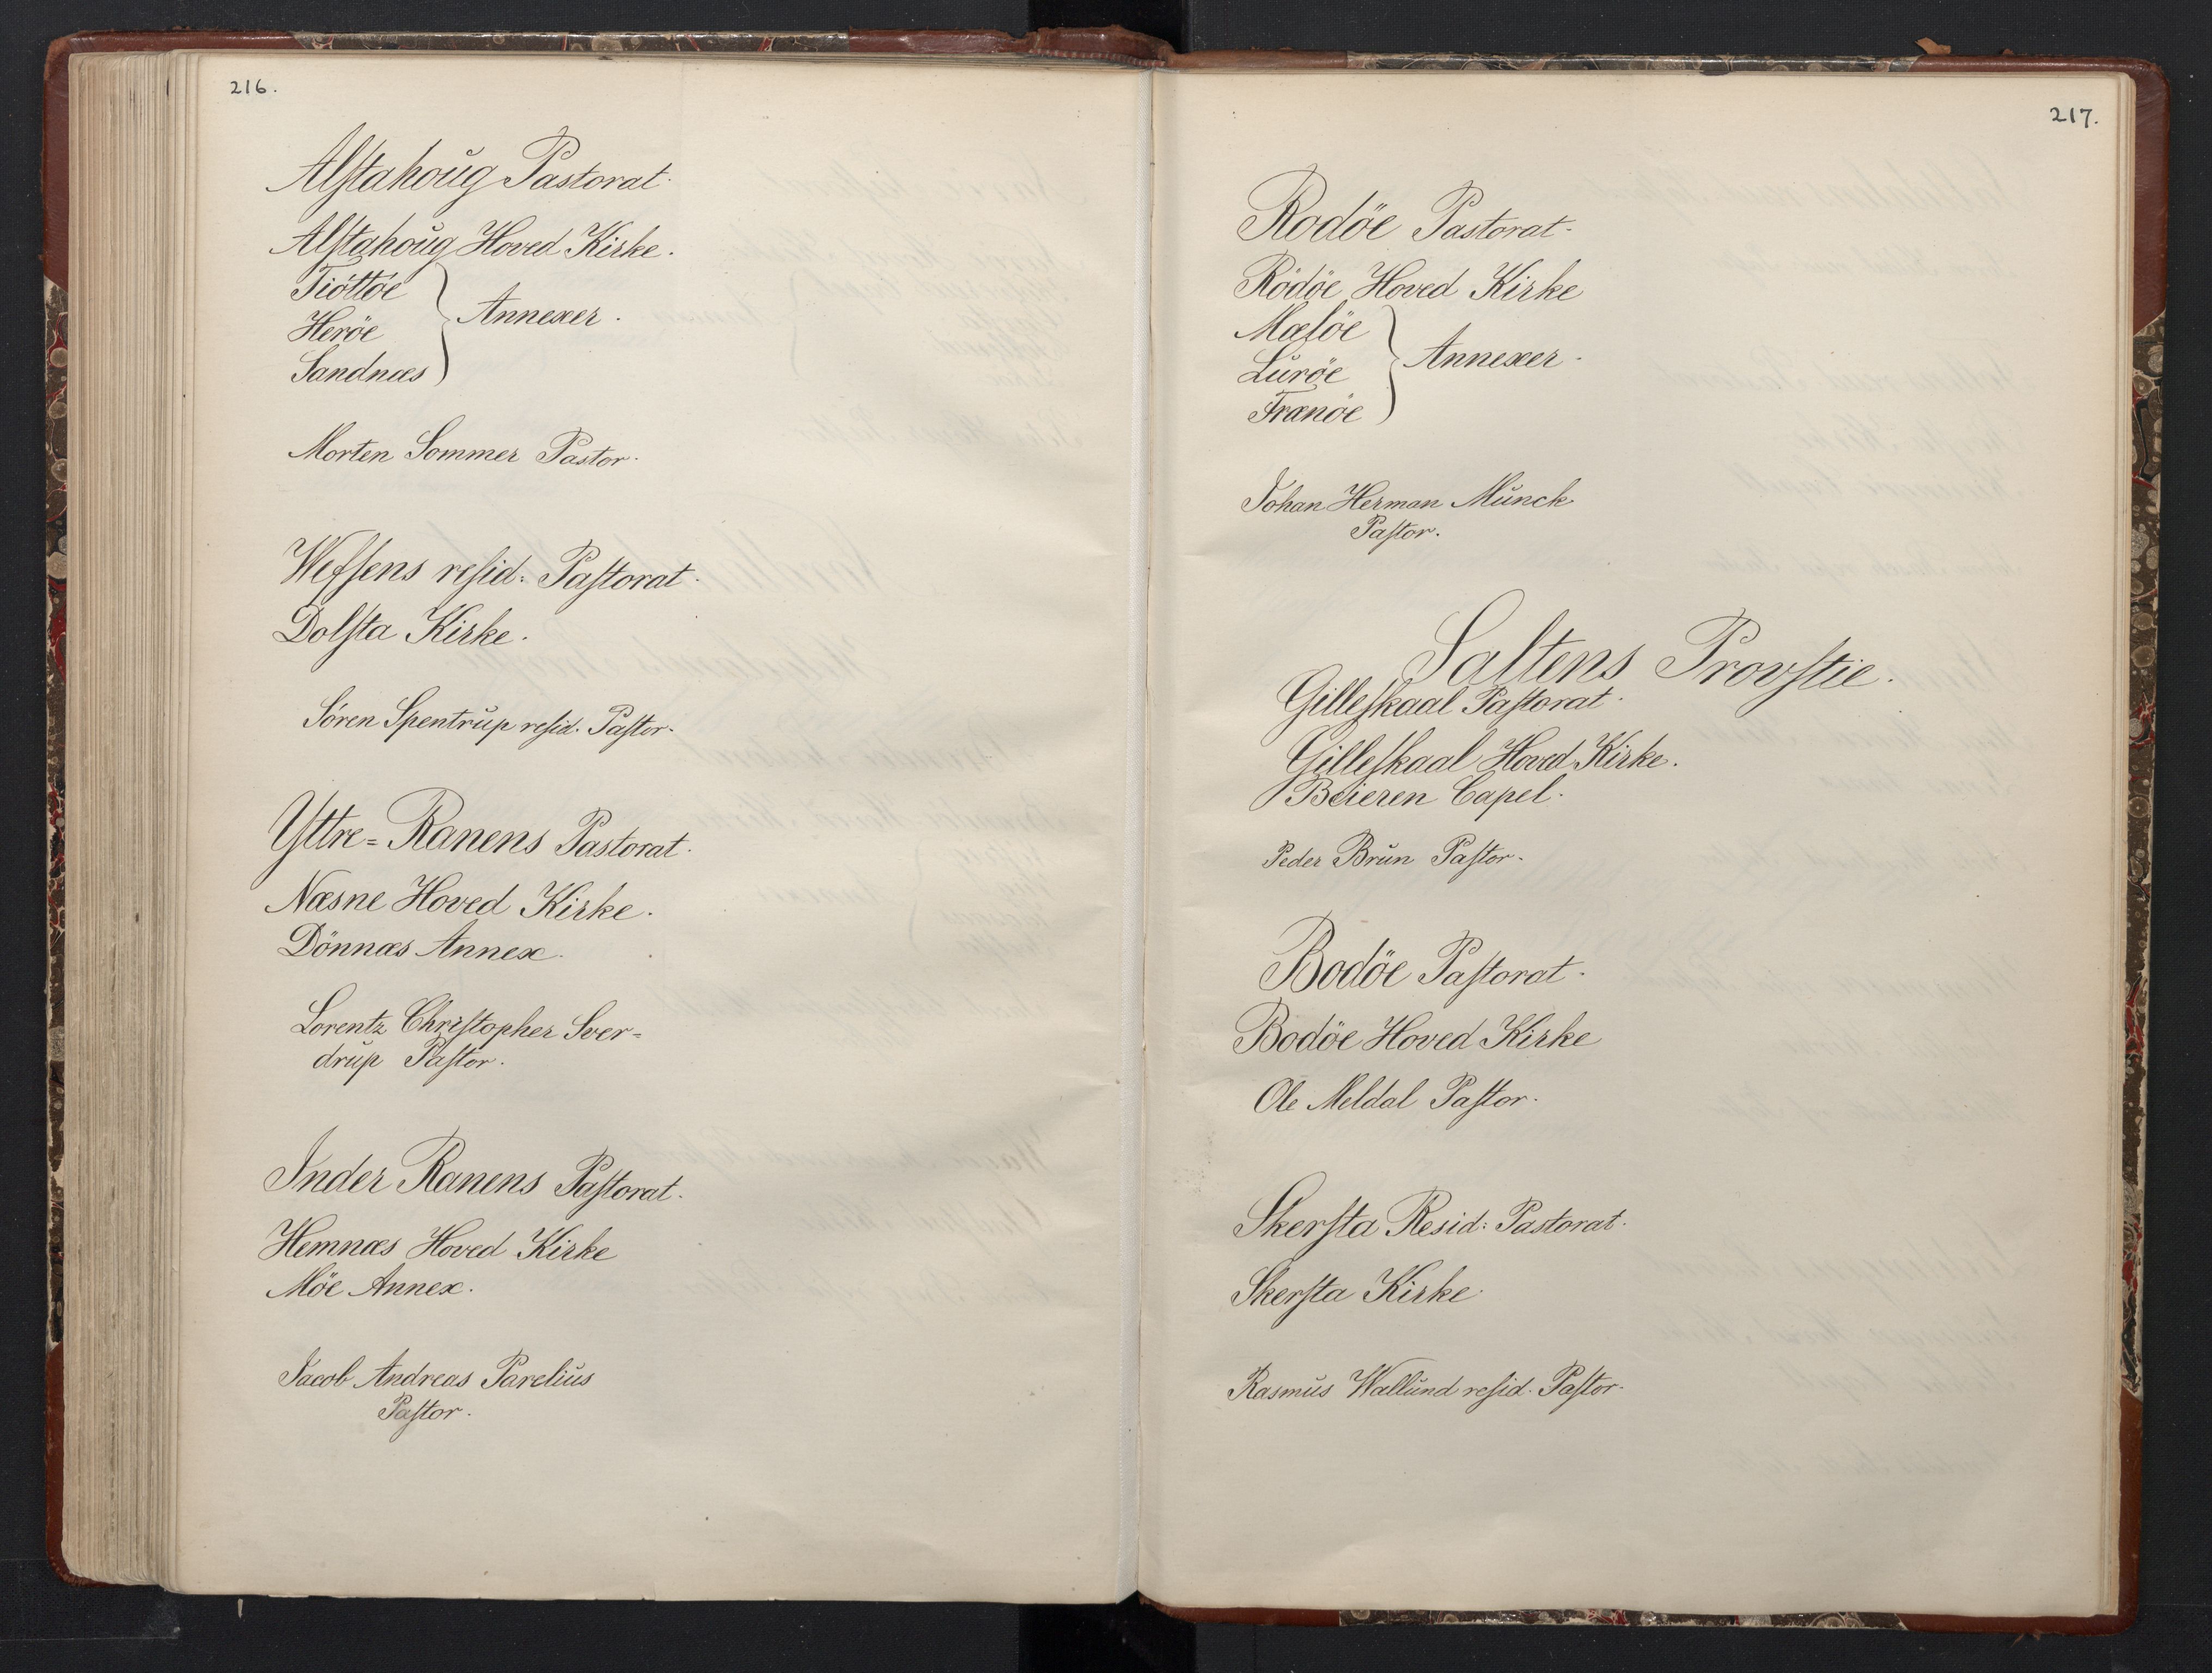 216.
Alstahoug Pastorat.
Alstahoug Hoved Kirke.
Tiöttöe
Heröe
Sandnæs
Annexer.
Morten Sommer Pastor.
Wefsens resid: Pastorat.
Dolsta Kirke.
Sören Spentrup resid. Pastor.
Yttre=Ranens Pastorat.
Næsne Hoved Kirke.
Dönnæs Annex.
Lorentz Christopher Sver=
drup Pastor.
Inder Ranens Pastorat.
Hemnæs Hoved Kirke
Möe Annex.
Jacob Andreas Parelius
Pastor.
217.
Rodöe Pastorat.
Rödöe Hoved Kirke
Mælöe
Luröe
Trænöe
Annexer.
Johan Herman Munck
Pastor.
Saltens Provstie.
Gilleskaal Pastorat.
Gilleskaal Hoved Kirke.
Beieren Capel.
Peder Brun Pastor.
Bodöe Pastorat.
Bodöe Hoved Kirke
Ole Meldal Pastor.
Skersta Resid: Pastorat.
Skersta Kirke.
Rasmus Wallund resid. Pastor.